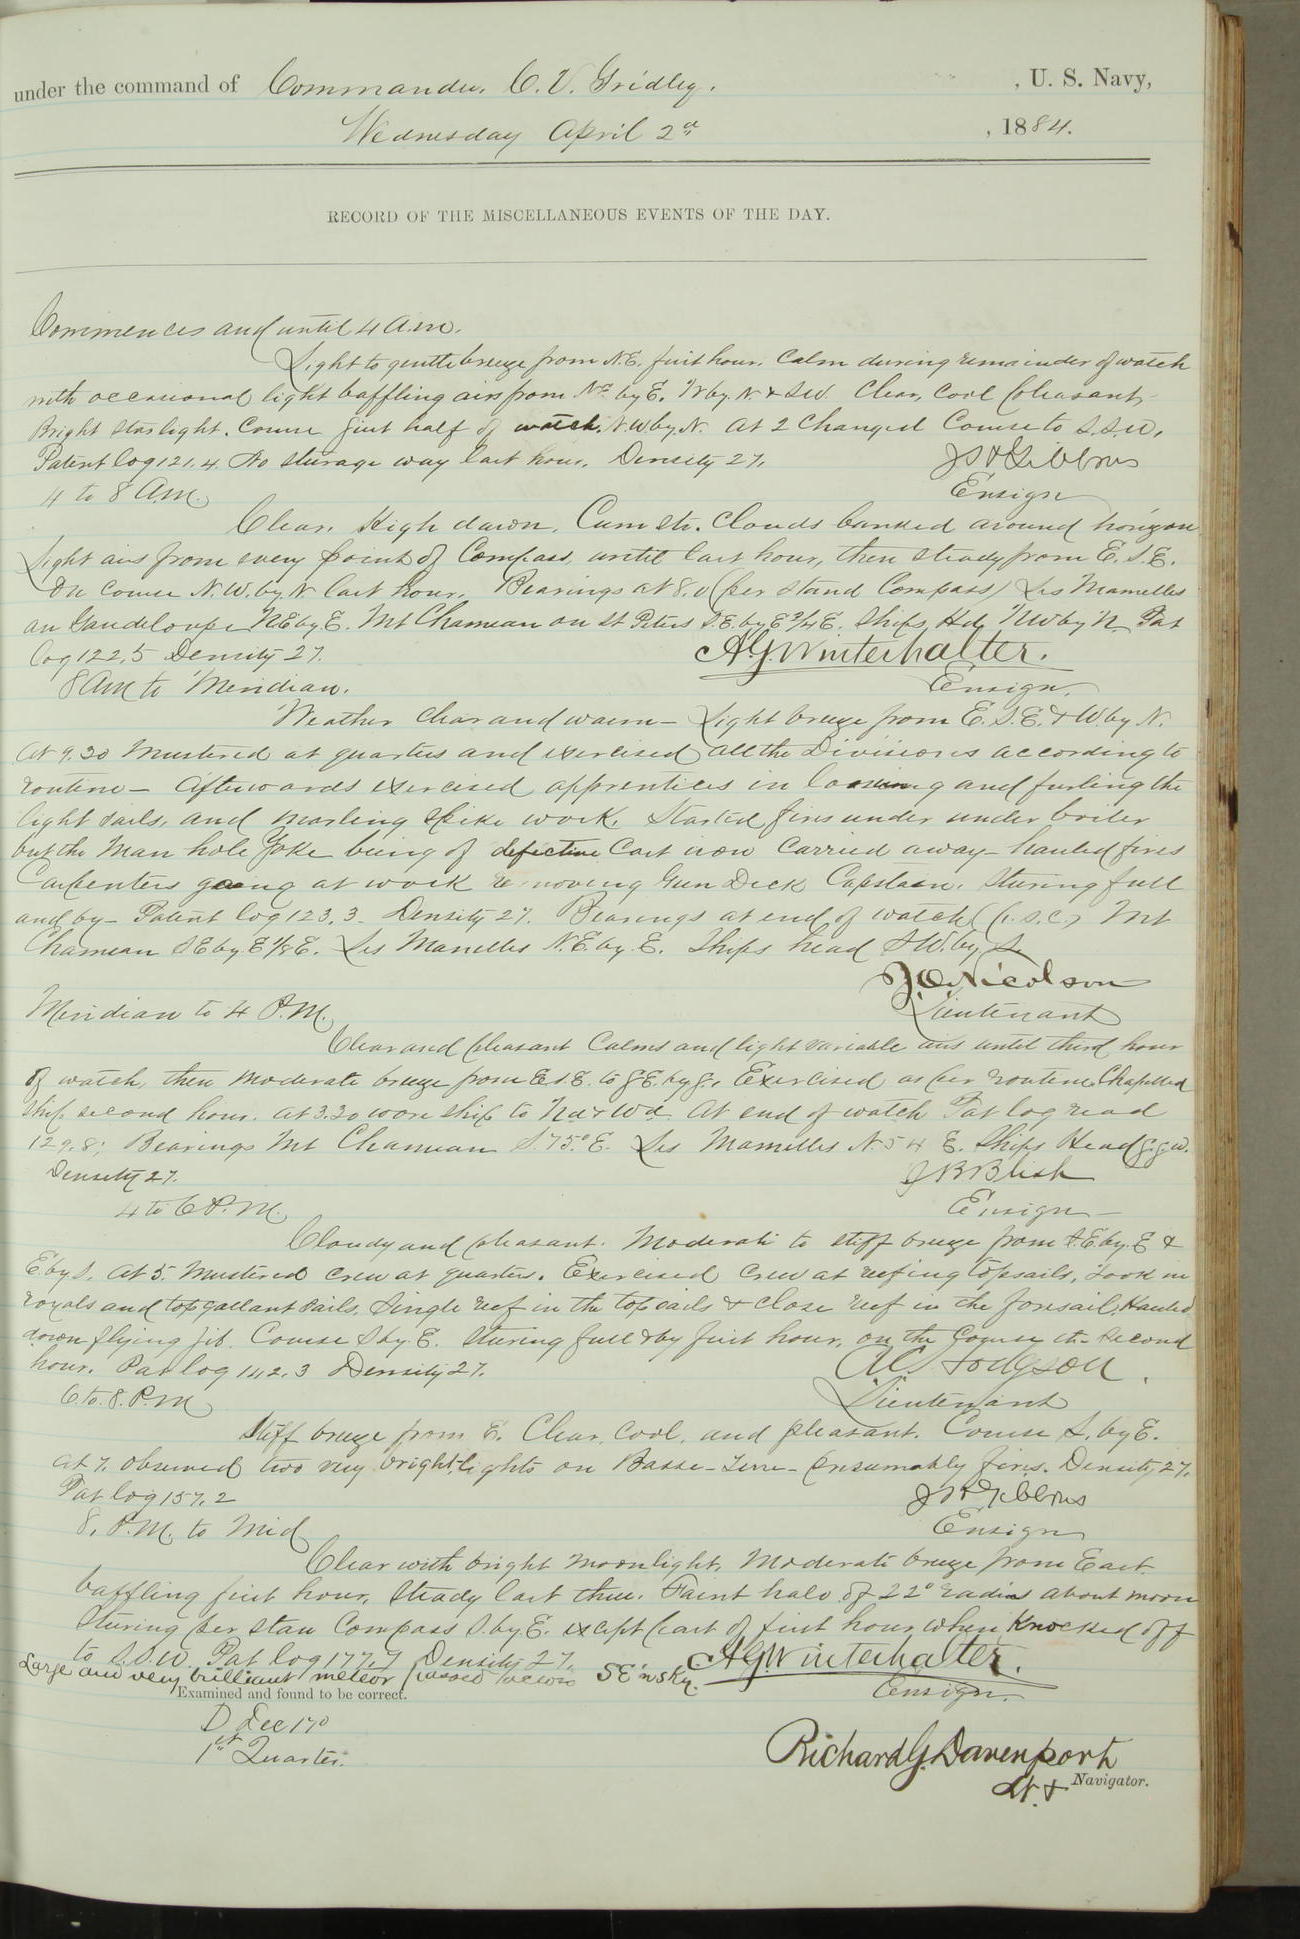 under the command of Commander. C. V. Gridley. , U. S. Navy,
Wednesday April 2d , 1884.
RECORD OF THE MISCELLANEOUS EVENTS OF THE DAY.
Commences and until 4 A.m.
Light to gentle breeze from N.E. first hour. Calm during remainder of watch
with occasional light baffling airs from Nd by E. W by. N & SW. Clear, Cool pleasant,
Bright starlight. Course first half of watch. N.W by. N. At 2 Changed Course to S.S.W.
Patent log 121.4. No steerage way last hour. Density 27. J H Gibbons
4 to 8 A.M. Ensign
Clear. High dawn. Cum str. Clouds banked around horizon
Light airs from every point of Compass, until last hour, then steady from E.S.E.
On course N.W. by. N last hour. Bearings at 8.0 (per stand Compass) Les Mamelles
on Gaudeloupe NE by. E. Mt Chamean on St Peters S.E. by E 3/4 E. Ships Hd. NW by N. Pat
log 122.5 Density 27. A.G. Winterhalter.
8 AM to Meridian. Ensign.
Weather clear and warm— Light breeze from E.S.E. & W. by N.
At 9.30 Mustered at quarters and exercised all the Divisions according to
routine— Afterwards exercised apprentices in loosening and furling the
light sails, and marling spike work. Started fires under under boiler
but the Man hole Yoke being of defective Cast iron carried away— hauled fires
Carpenters gang at work removing Gun Deck Capstan. Steering full
and by— Patent log 123.3— Density 27. Bearings at end of watch (p.s.c.) Mt
Chamean SE by. E 1/8 E. Les Manelles N.E by. E. Ships head S W. by S.
J O Nicolson
Meridian to 4 P.M. Lieutenant
Clear and pleasant Calms and light variable airs until third hour
of watch, then moderate breeze from E S E. to S E. by S. Exercised as per routine. Chapelled
ship second hour. At 3.30 wore ship to Nd & Wd. At end of watch Pat log read
129.8; Bearings Mt Chamean S. 75° E. Les Mamelles N. 54 E. Ships Head S.S.W.
Density 27. J B Blish
4 to 6 P.M. Ensign—
Cloudy and pleasant. Moderate to stiff breeze from S.E. by. E &
E. by S. At 5. Mustered crew at quarters. Exercised Crew at reefing topsails, Took in
royals and top gallant sails, single reef in the topsails & close reef in the foresail. Hauled
down flying jib. Course S by. E. Steering full & by first hour, on the Course the second
hour. Pat log 142.3 Density 27. A C Hodgson.
6. to. 8. P.M. Lieutenant
Stiff breeze from E. Clear, cool, and pleasant. Course S. by E.
At 7. observed two very bright lights on Basse-Terre— presumably fires. Density 27.
Pat log 157.2 J H Gibbons
8. P.M. to Mid Ensign
Clear with bright moonlight. Moderate breeze from East—
baffling first hour, steady last three. Faint halo of 22° radius about moon
Steering per stan Compass S. by E. except part of first hour when knocked off
to S.S.W. Pat log 177.7 Density 27. A.G. Winterhalter.
Large and very brilliant meteor passed across SE'n sky. Ensign.
Examined and found to be correct.
D Dec 17°
1st Quarter. Richard G. Davenport
Lt. & Navigator.